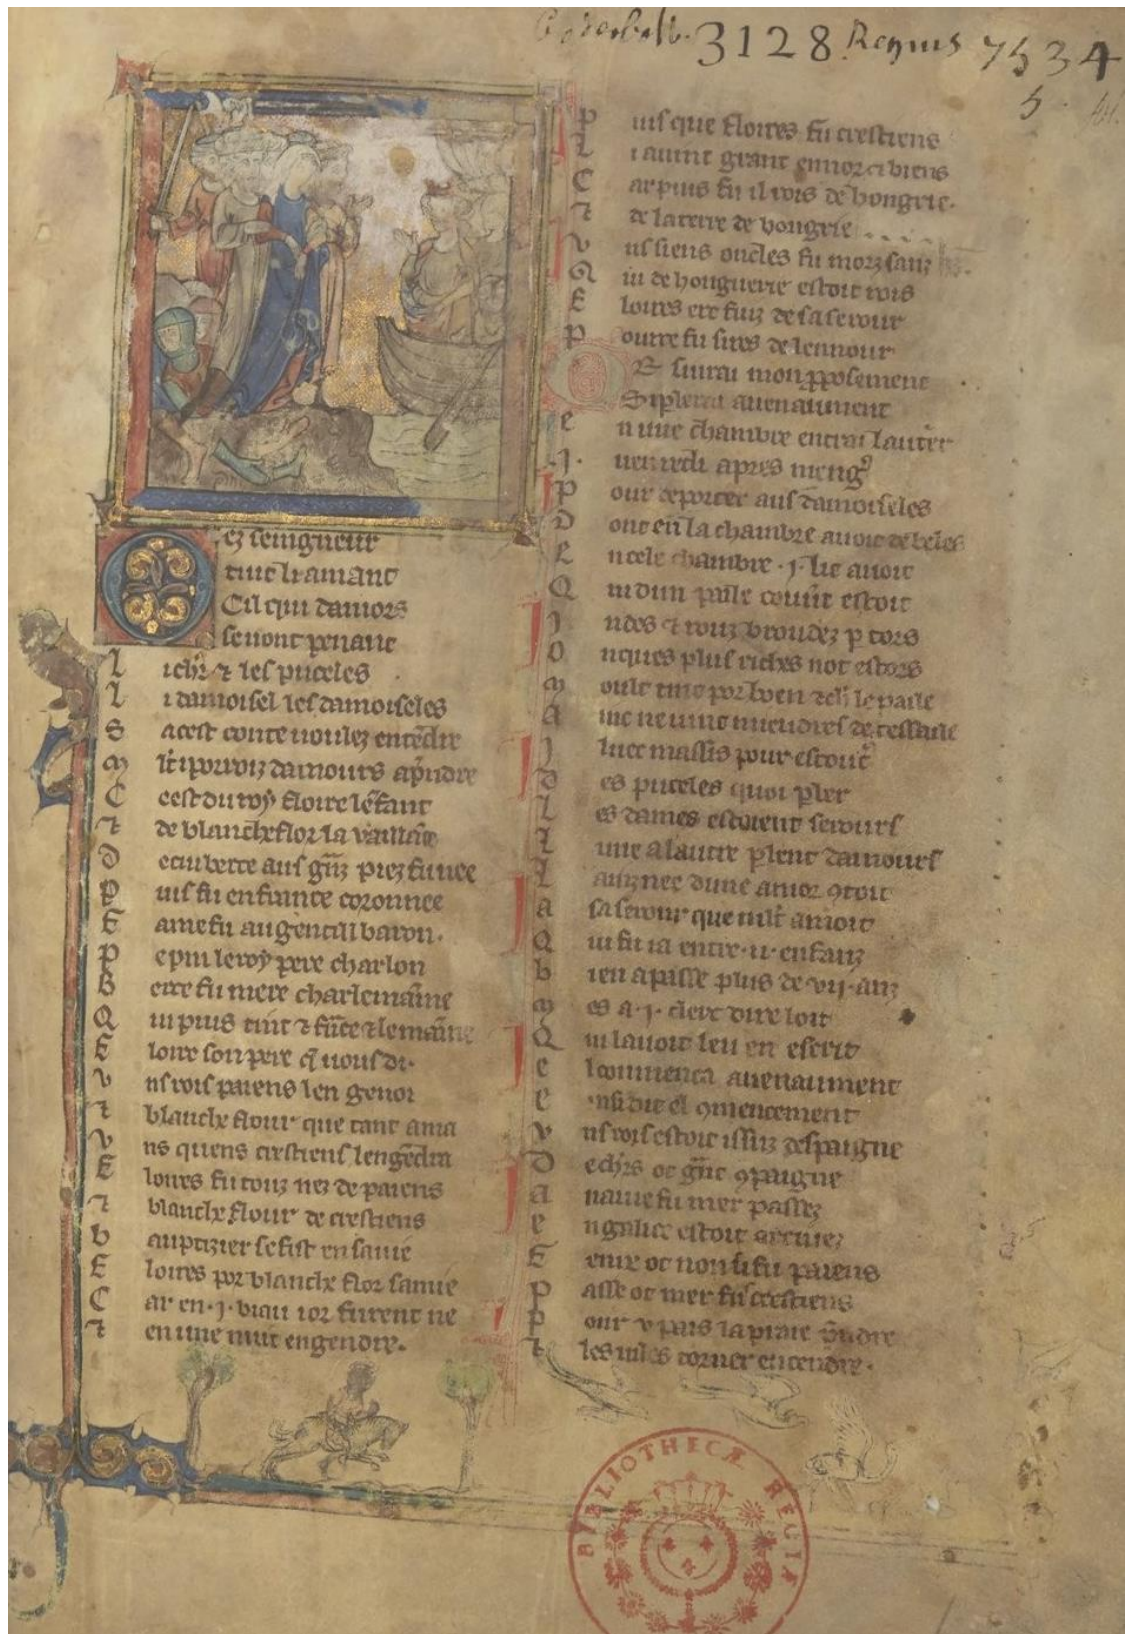 3128. Regius 7534
5.
Oez seingneur
tuit li amant
Cil qui damors
se vont penant
li chr̄ ⁊ les puceles
li damoisel les damoiseles
S acest conte voulez entēdre
ml̄t i porroiz damours ap̄ndre
Ceest du roy floire lēfant
⁊ de blancheflor la vaillāt
de cui berte aus gn̄z piez fu nee
puis fu en france coronnee
Fame fu au gentil baron.
Pepin le roy pere charlon
Berte fu mere charlemaine
Qui puis tint ⁊ frāce ⁊ le maine
Floire son pere q̄ vous di.
vns rois paiens len genoi
⁊ blanche flour que tant ama
vns quens crestiens lengēdra
Floires fu touz nez de paiens
⁊ blanche flour de crestiens
bauptizier se fist en sa vie
Floires por blanche flor samie
Car en .j. biau ior furent ne
⁊ en vne nuit engendre.
puis que floires fu crestiens
li auint grant ennor ⁊ biens
Car puis fu il rois de hongrie.
⁊ de la terre de vougrie
vns siens oncles fu morz sanz
Qui de honguerie estoit rois
Floires ere fiuz de sa serour
pourre fu sires de lennour
Or siurai mon p̄posement
Si pl̄erai auenaument
en vne chambre entrai lautrier
.j. venredi apres mengᵉ̄
pour deporter aus damoiseles
dont en la chambre auoit de beles
En cele chambre .j. lit auoit
Qui dun paile couūt estoit
Jndes ⁊ rouz broudez p̄ tors
onques plus riches not estors
moult tuit por boen
ainc ne vint mieudres de tessaile
Jluec massis pour escoutᵉ̄
des puceles quoi pl̄er
les dames estoient serours
lune a lautre pl̄ent damours
lauznee dune amor ꝯtoit
a sa serour que ml̄t amoit
Qui fu ia entre .ij. enfanz
bien a passe plus de .vij. anz
mes a .j. clerc dire loit
Qui lauoit leu en escrit
el commenca auenaument
ensi dit el ꝯmencement
vns rois estoit issuz despaigne
de chr̄s ot gn̄t ꝯpaigne
a nauie fu mer passez
en galice estoit arriuez
Fenix ot non si fu paiens
passe ot mer
pour v pais la praie p̄ndre
⁊ les viles torner en cendre.
BIBLIOTHECÆ REGIÆ